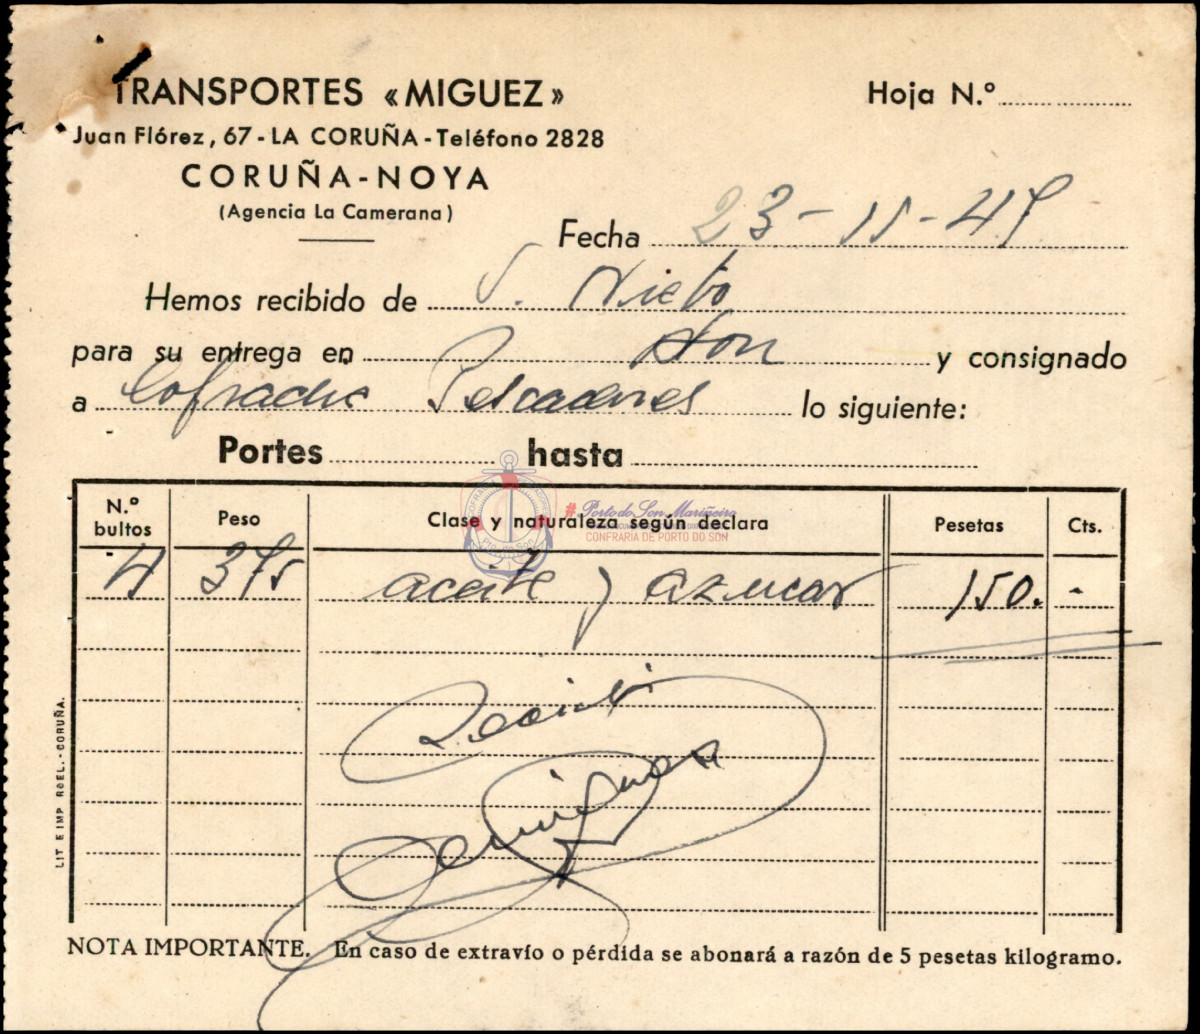 TRANSPORTES «MIGUEZ»
Hoja N.º
Juan Flórez, 67 - LA CORUÑA - Teléfono 2828
CORUÑA-NOYA
(Agencia La Camerana)
Fecha 23-11-49
Hemos recibido de S. Nieto
para su entrega en Son y consignado
a Cofradia Pescadores lo siguiente:
Portes hasta
N.º bultos Peso Clase y naturaleza según declara Pesetas Cts.
#PortodoSonMariñeiro
CONFRARIA DE PORTO DO SON
4 375 aceite y azucar 150. -
Recibi
LIT E IMP ROEL.-CORUÑA.
NOTA IMPORTANTE. En caso de extravío o pérdida se abonará a razón de 5 pesetas kilogramo.